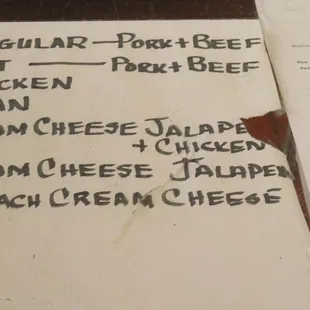 GULAR — PORK + BEEF
T — PORK + BEEF
ICKEN
AN
OM CHEESE JALAPE
+ CHICKEN
OM CHEESE JALAPEN
ACH CREAM CHEESE